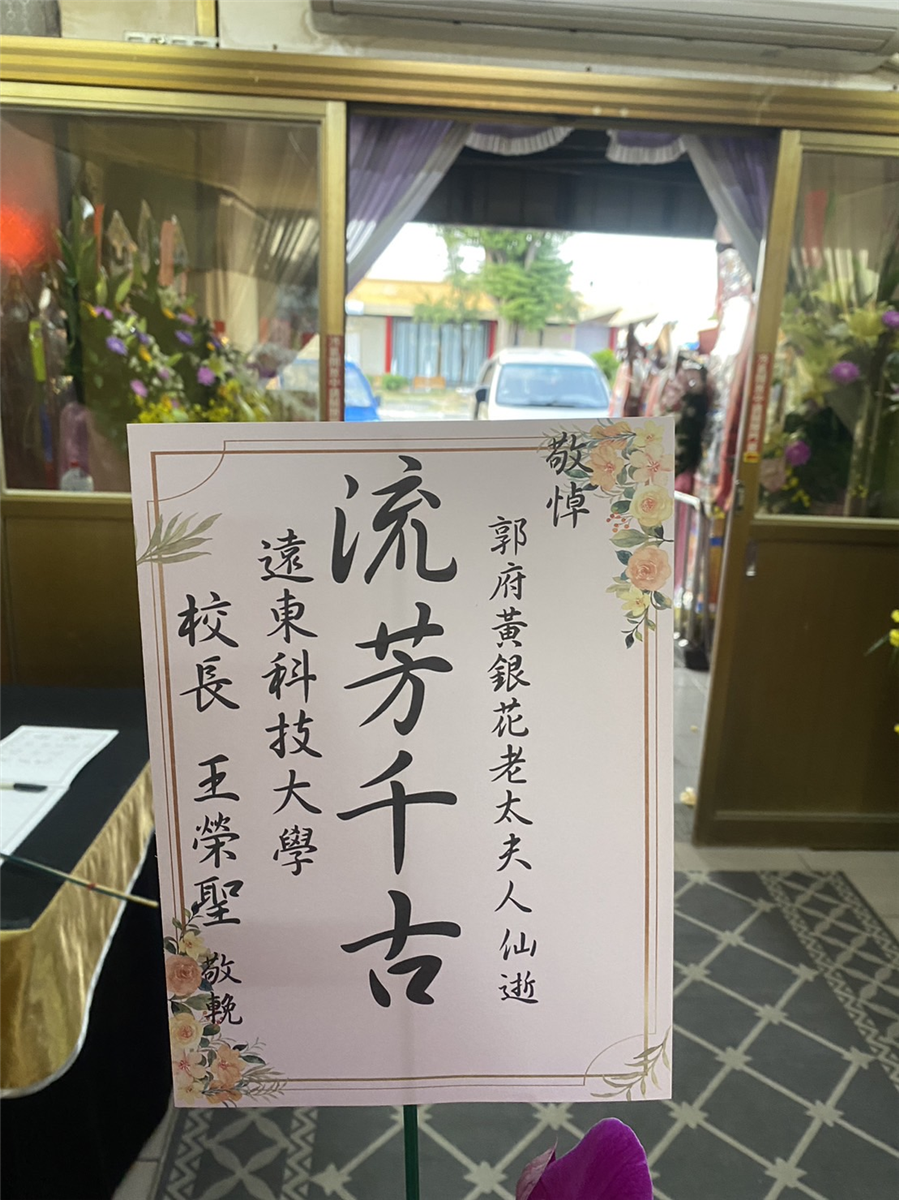 敬悼
郭府黃銀花老太夫人仙逝
流芳千古
遠東科技大學
校長 王榮聖 敬輓